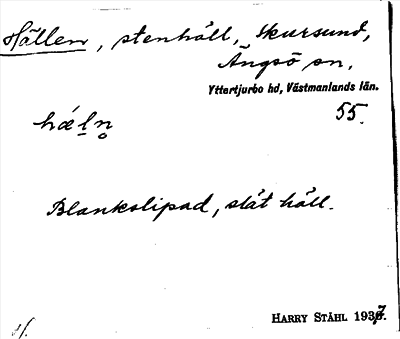 Hällen, stenhäll, Skursund,
Ängsö sn,
Yttertjurbo hd, Västmanlands län.
55.
hǽḻn̥
Blankslipad, slät häll.
HARRY STÅHL 1937.